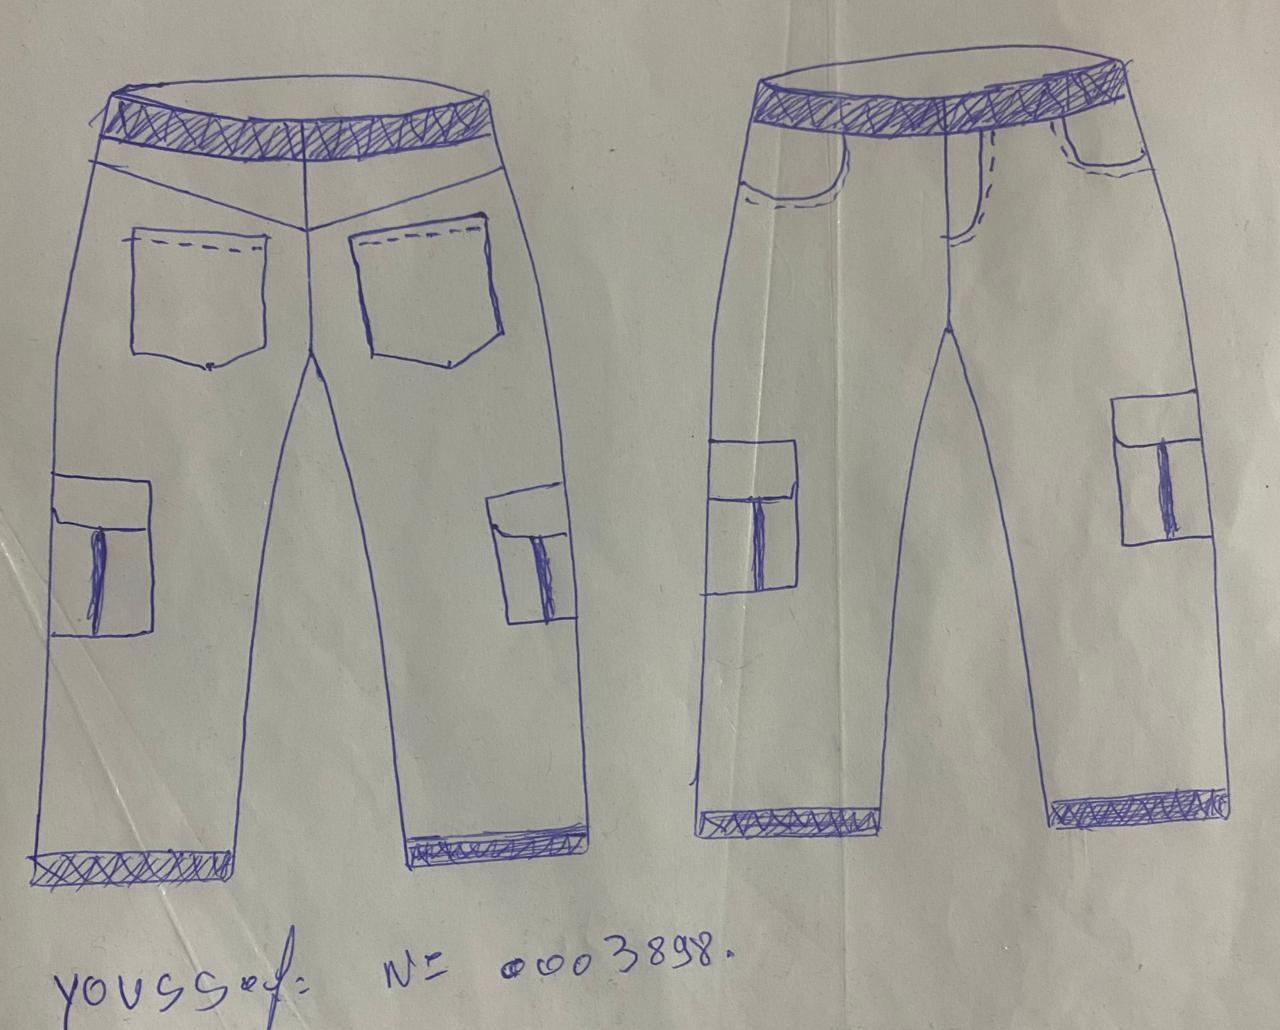 YOUSSef: N= 0003898.